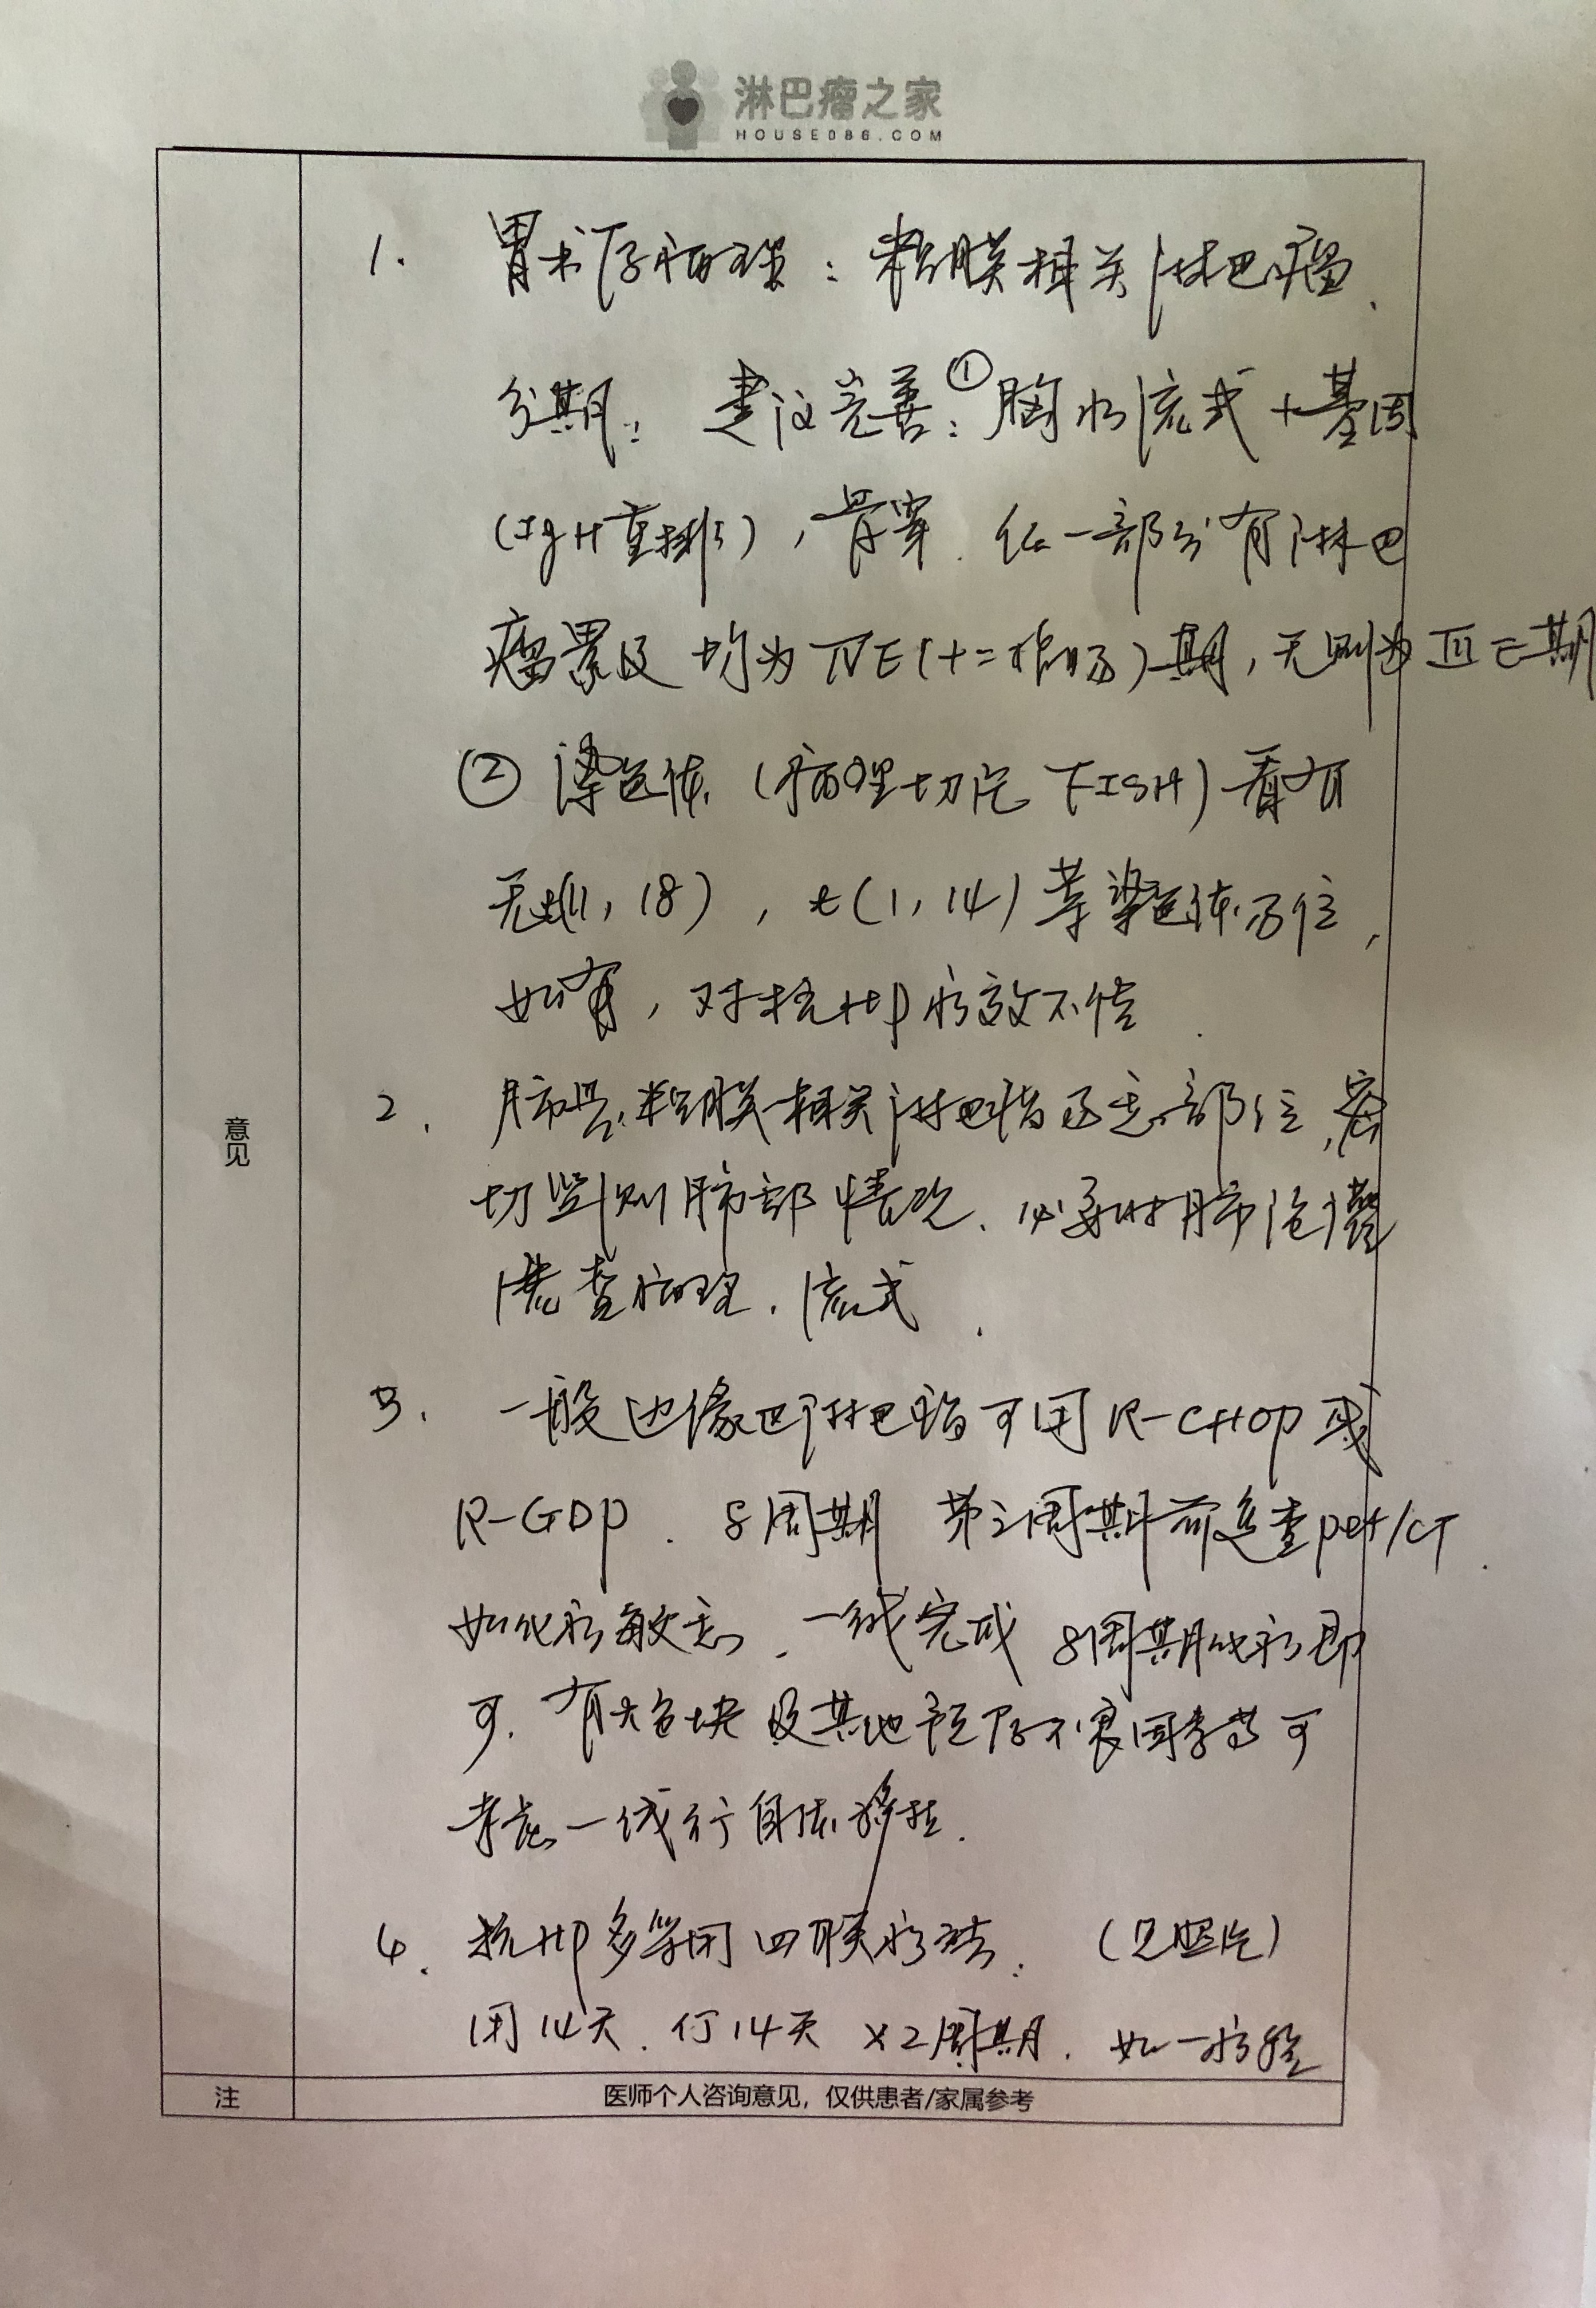 淋巴瘤之家
HOUSE086.COM
1. 胃术后病理：粘膜相关淋巴瘤.
分期：建议完善：①胸水流式+基因
(IgH重排)，骨穿. 任一部分有淋巴
瘤累及均为IVE(十二指肠)期，无则为IIE期
② 染色体(病理切片FISH)看有
无t(11,18)，t(1,14)等染色体易位，
如有，对抗HP疗效不佳.
2. 肺是粘膜相关淋巴瘤好发部位，密
切监测肺部情况. 必要时肺泡灌
洗查病理. 流式.
3. 一般边缘区淋巴瘤可用R-CHOP或
R-GDP. 8周期 第3周期前复查pet/CT.
如化疗敏感，一线完成8周期化疗即
可. 有大包块及其他预后不良因素者可
考虑一线行自体移植.
4. 抗HP多学用四联疗法. (见照片)
用14天. 停14天 ×2周期. 如一疗程
意见
注
医师个人咨询意见，仅供患者/家属参考